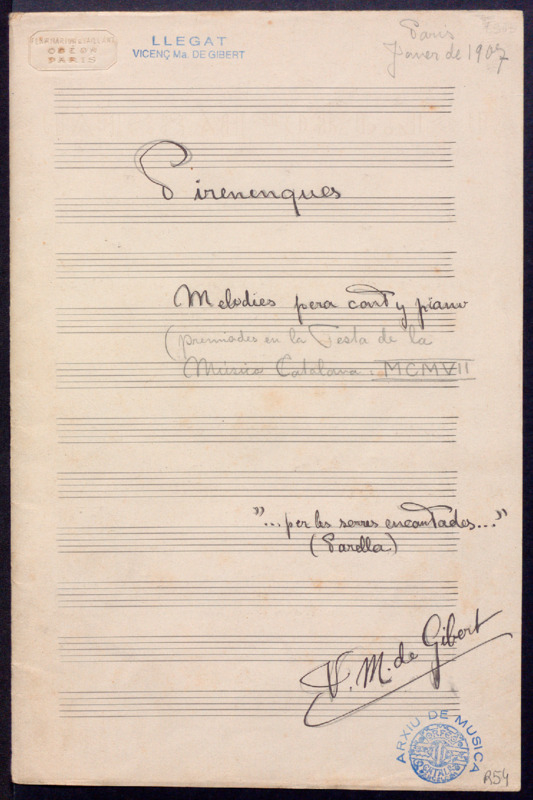 LLEGAT
VICENÇ Ma. DE GIBERT
Paris
Janer de 1907
Pirenenques
Melodies pera cant y piano
(premiades en la Festa de la
Música Catalana. MCMVII
"... per les serres encantades..."
(Parella)
V. M. de Gibert
ARXIU DE MUSICA
R54
PARIS